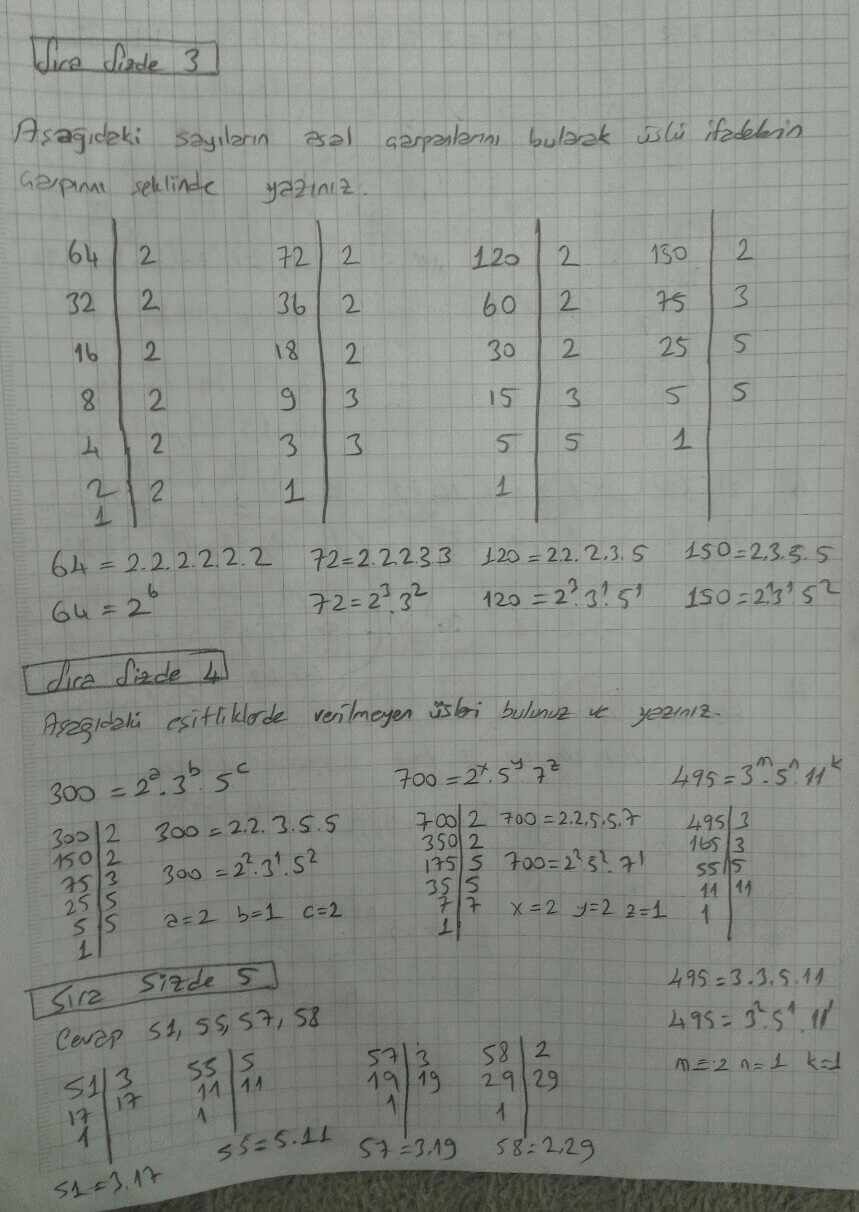 Sıra Sizde 3
Aşağıdaki sayıların asal çarpanlarını bularak üslü ifadelerin
çarpımı seklinde yazınız.
64 2 72 2 120 2 150 2
32 2 36 2 60 2 75 3
16 2 18 2 30 2 25 5
8 2 9 3 15 3 5 5
4 2 3 3 5 5 1
2 2 1 1
1
64 = 2.2.2.2.2.2 72=2.2.2.3.3 120=2.2.2.3.5 150=2.3.5.5
64 = 2⁶ 72=2³.3² 120=2³.3¹.5¹ 150=2¹.3¹.5²
Sıra Sizde 4
Aşağıdaki eşitliklerde verilmeyen üsleri bulunuz ve yazınız.
300 = 2ᵃ.3ᵇ.5ᶜ 700 = 2ˣ.5ʸ 7ᶻ 495=3ᵐ.5ⁿ.11ᵏ
300 2 300 = 2.2.3.5.5 700 2 700=2.2.5.5.7 495 3
150 2 350 2 165 3
75 3 300 = 2².3¹.5² 175 5 700=2².5².7¹ 55 5
25 5 35 5 11 11
5 5 a=2 b=1 c=2 7 7 x=2 y=2 z=1 1
1 1
Sıra Sizde 5 495=3.3.5.11
Cevap 51, 55, 57, 58 495=3².5¹.11¹
51 3 55 5 57 3 58 2 m=2 n=1 k=1
17 17 11 11 19 19 29 29
1 1 1 1
51=3.17 55=5.11 57=3.19 58=2.29